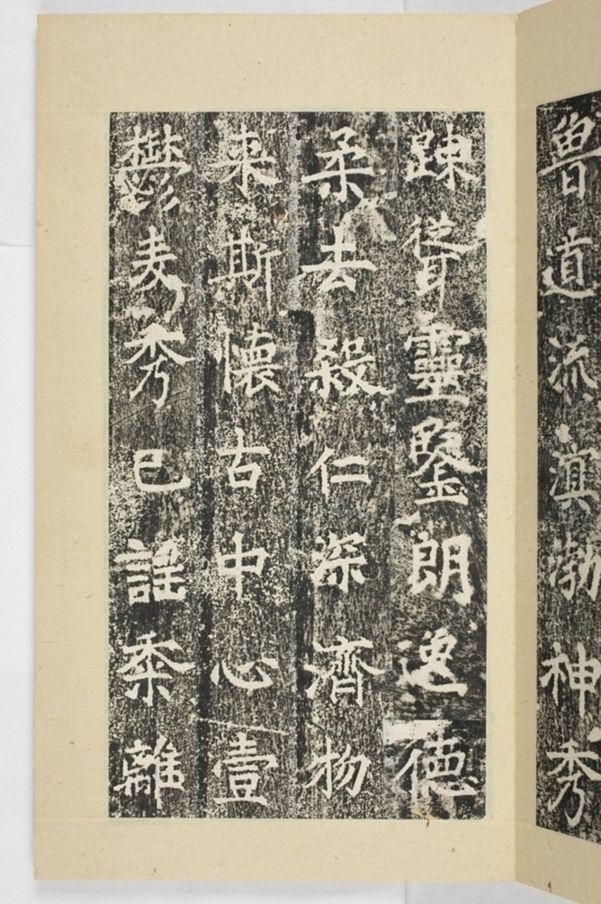 魯道流滇渤神秀
踈靈鑒朗逸德
柔去殺仁深濟物
来斯懷古中心壹
鬱麦秀已謡黍離